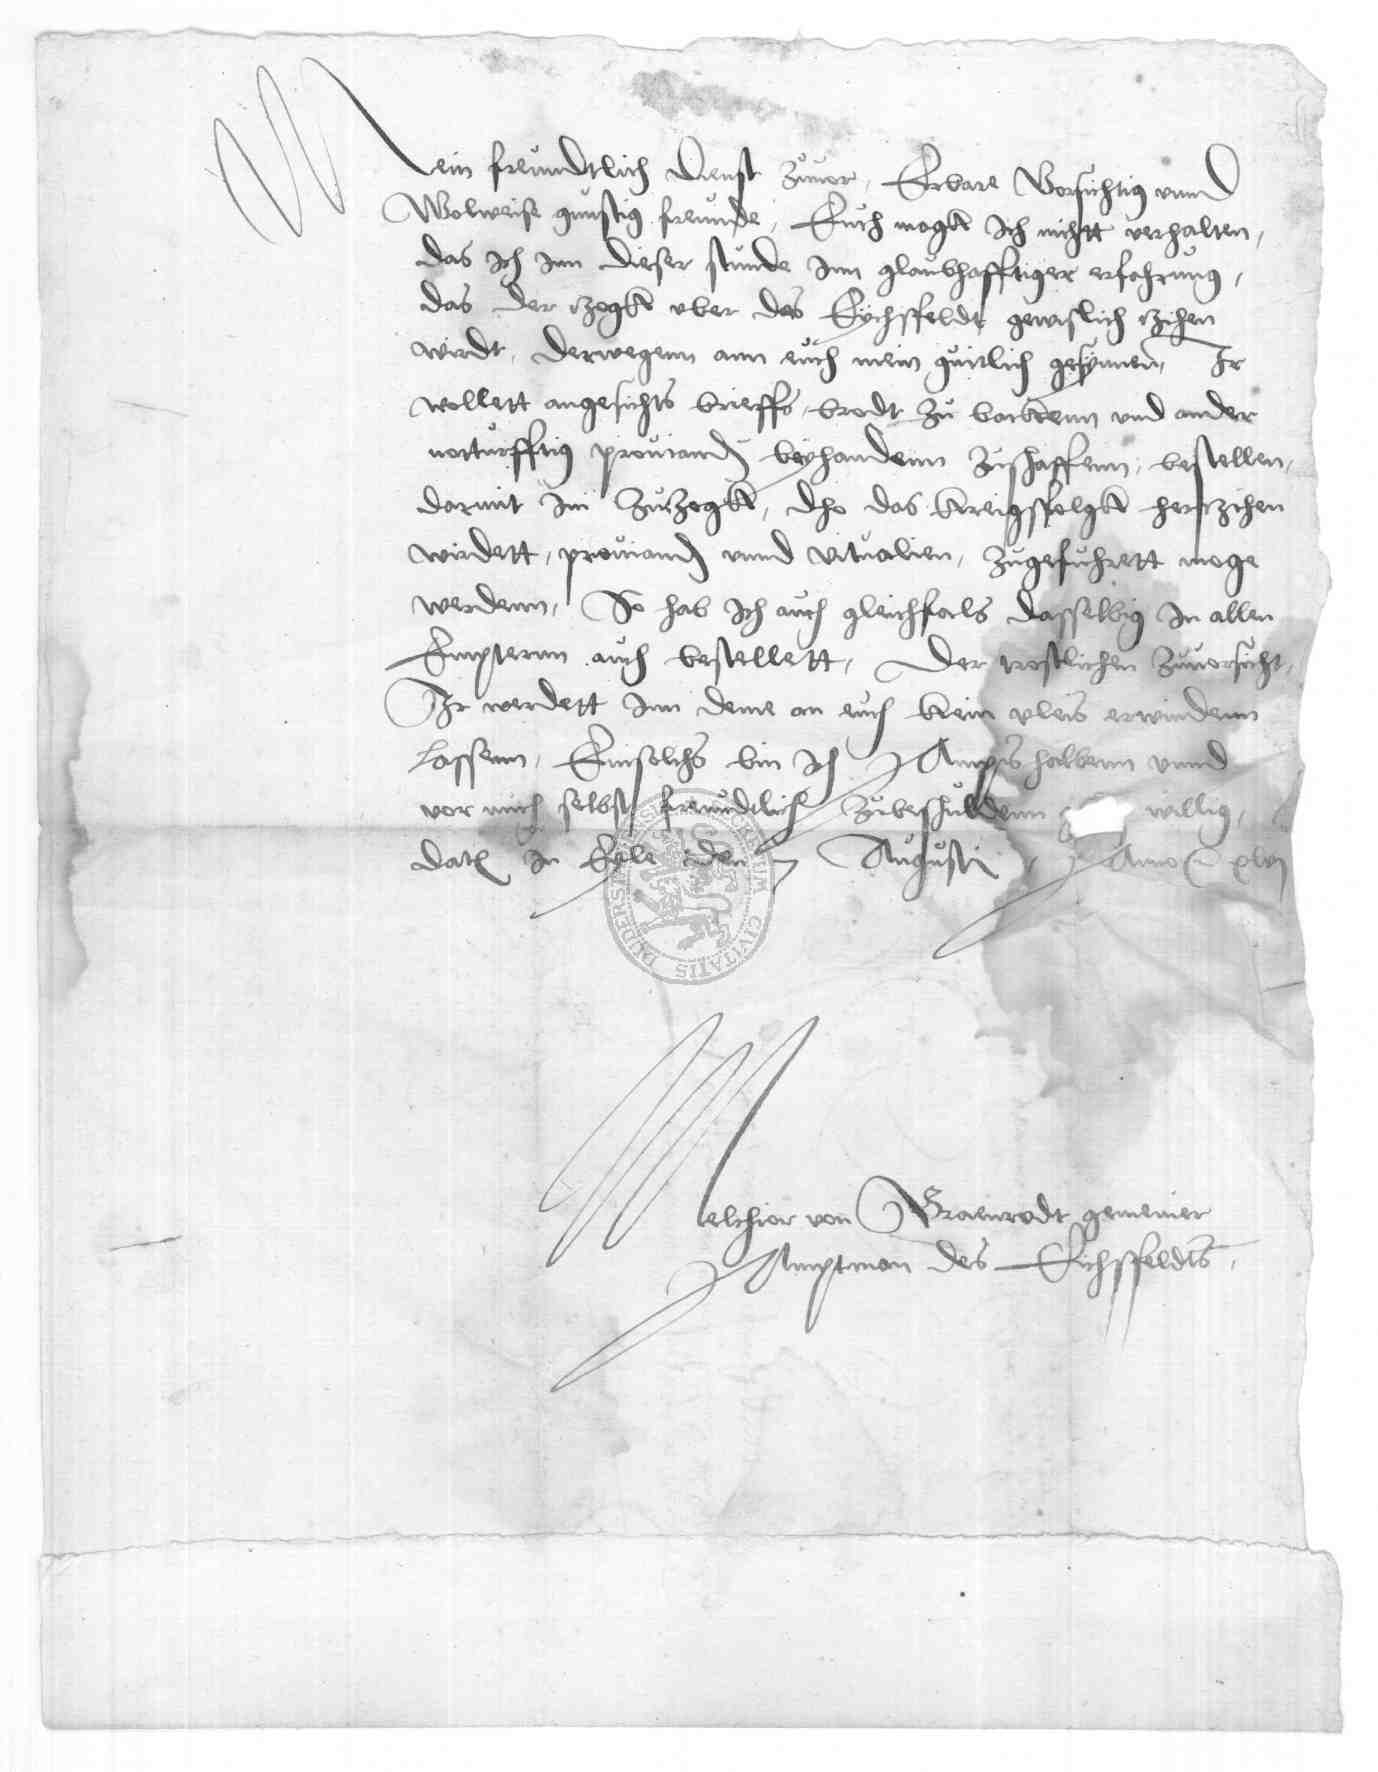 Mein freundtlich Dienst zuuor, Erbare Vorsichtig vnnd
Wolweise gunstig freunde, Euch mogk Ich nichtt verhalten,
das Ich Inn dieser stunde Inn glaubhafftiger erfahrung,
das der zogk vber das Eychssfeldt gewislich zihen
wirdt, Derwegenn ann euch mein gutlich gesynnen, Ir
wollett angesichts brieffs, brodt zu backenn vnd ander
notturfftig prouiand beyhandenn zuschaffenn, bestellen,
darmit Im zuzogk, dho das kreigssfolgk herzihen
wirdett, prouiand vnnd vitualien, zugefuhrett moge
werdenn, So hab Ich auch gleichfals dasselbig In allen
Empternn auch bestellett, Der trostlichen zuuorsicht,
Ir werdett Inn deme an euch kein vleis erwindenn
lassenn, Einsolchs bin Ich Ampts halbenn vnnd
vor mich selbst freundtlich zubeschuldenn willig,
Dat In den Augusti Anno xlvj
Melchior von Graenrodt gemeiner
Amptman des Eichssfeldts,
SIGILLUM CIVITATIS DUDERST